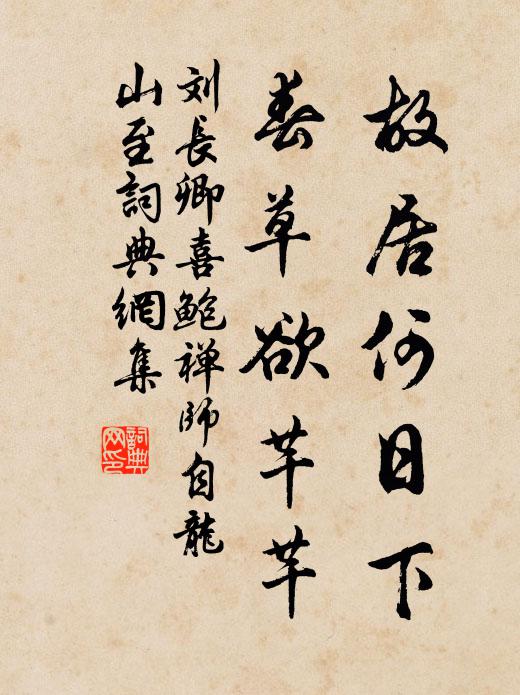 故居何日下
春草欲芊芊
刘長卿喜鲍禅師自龍
山至詞典網集
詞典
网印